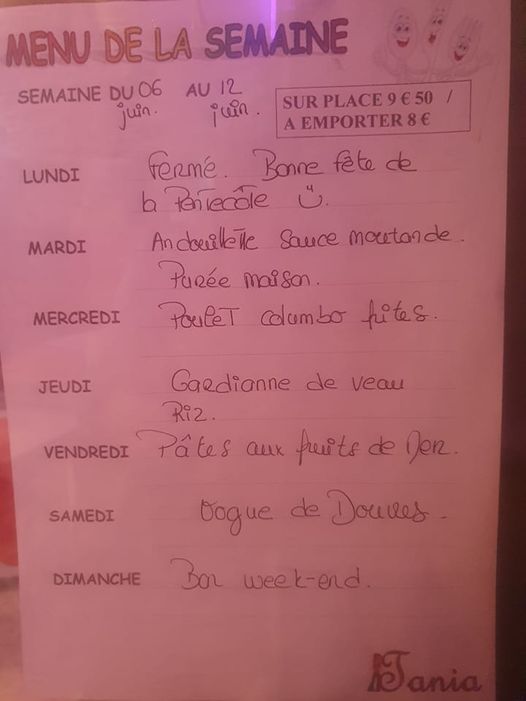 MENU DE LA SEMAINE
SEMAINE DU 06 juin. AU 12 juin.
SUR PLACE 9 € 50 /
A EMPORTER 8 €
LUNDI fermé. Bonne fête de
la Pentecôte
MARDI Andouillette sauce moutarde.
Purée maison.
MERCREDI Poulet colombo frites.
JEUDI Gardianne de veau
Riz.
VENDREDI Pâtes aux fruits de Mer.
SAMEDI de Douves.
DIMANCHE Bon week-end.
Tania